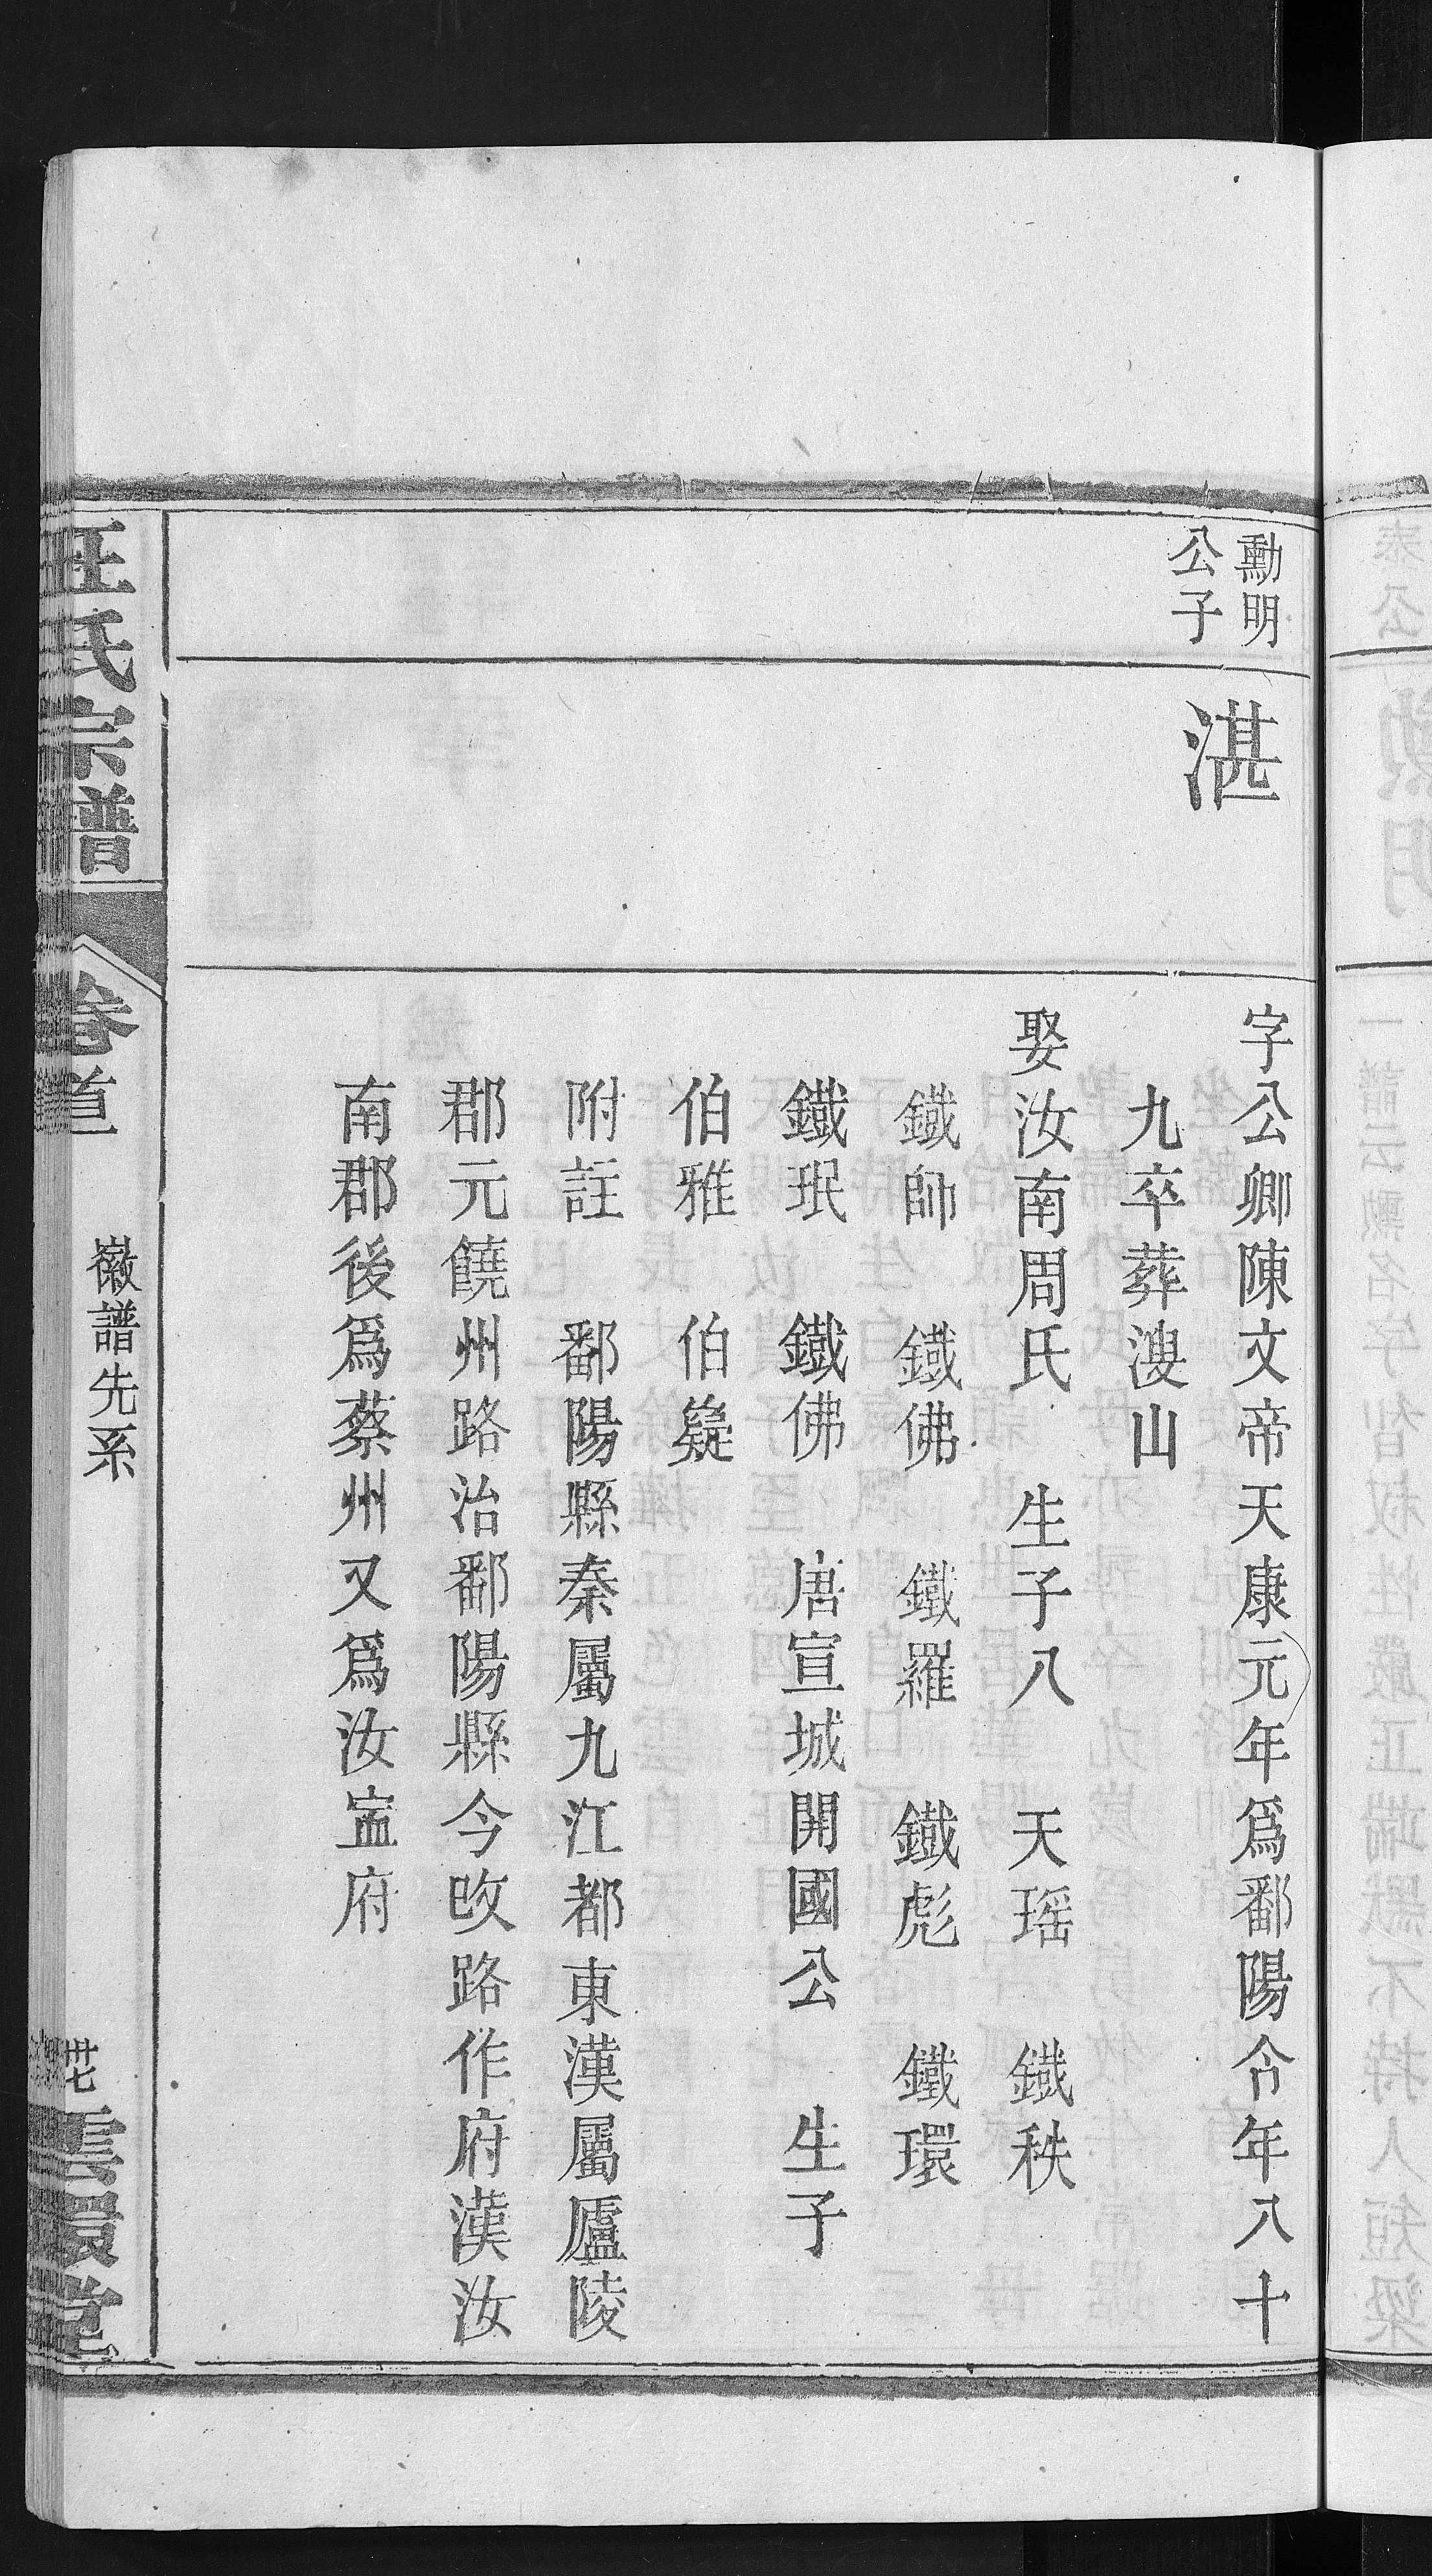 勳明
公子
湛
字公卿陳文帝天康元年爲鄱陽令年八十
九卒葬溲山
娶汝南周氏 生子八 天瑶 鐵秩
鐵帥 鐵佛 鐵羅 鐵彪 鐵環
鐵珉 鐵佛 唐宣城開國公 生子
伯雅 伯嶷
附註 鄱陽縣秦屬九江都東漢屬廬陵
郡元饒州路治鄱陽縣今改路作府漢汝
南郡後爲蔡州又爲汝寍府
汪氏宗譜
卷首
徽譜先系
卅七
雲環堂